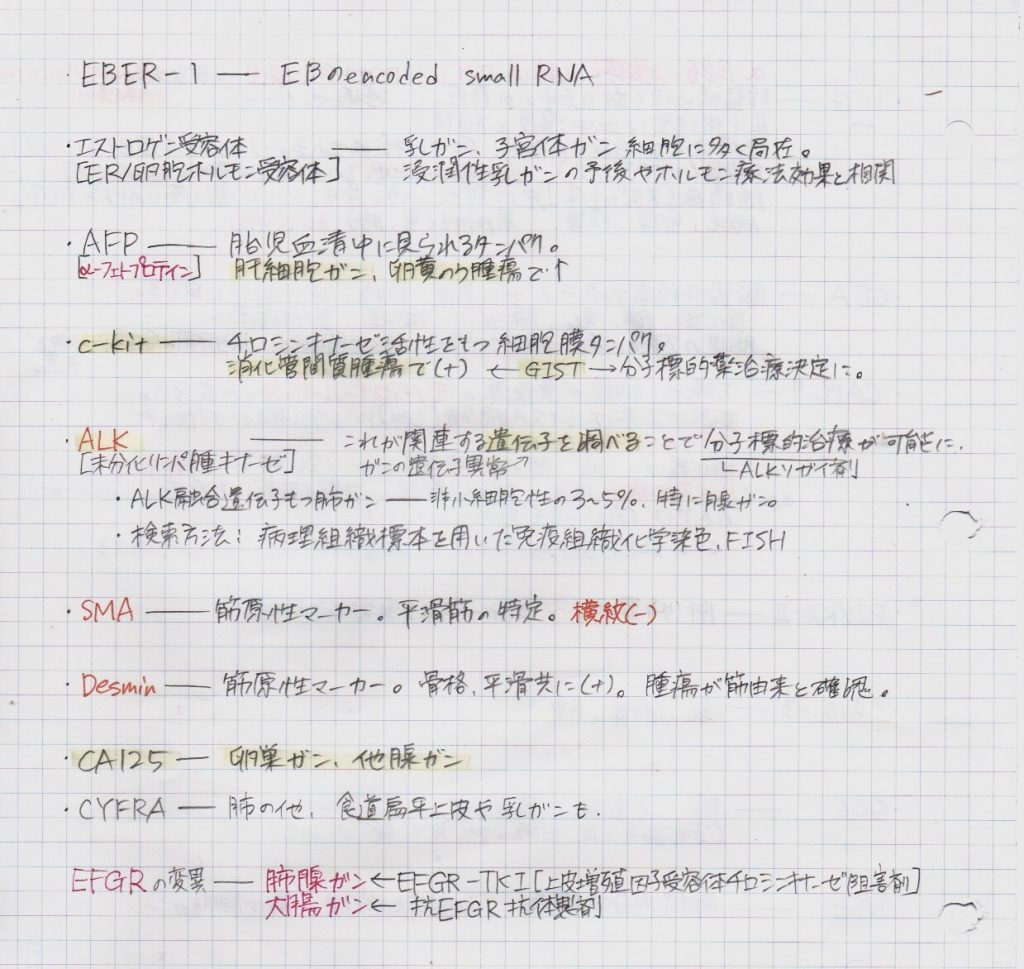 ・EBER-1 ― EBのencoded small RNA
・エストロゲン受容体 ―― 乳ガン、子宮体ガン 細胞に多く局在。
[ER/卵胞ホルモン受容体] 浸潤性乳ガンの予後やホルモン療法効果と相関
・AFP ―― 胎児血清中に見られるタンパク。
[α-フェトプロテイン] 肝細胞ガン、卵黄のう腫瘍で↑
・c-kit ―― チロシンキナーゼ活性をもつ細胞膜タンパク。
消化管間質腫瘍で(+) ← GIST →分子標的薬治療決定に。
・ALK ―― これが関連する遺伝子を調べることで分子標的治療が可能に.
[未分化リンパ腫キナーゼ] ガンの遺伝子異常↗ └ALKソガイ剤
・ALK融合遺伝子もつ肺ガン ― 非小細胞性の3~5%. 特に腺ガン。
・検索方法: 病理組織標本を用いた免疫組織化学染色、FISH
・SMA ―― 筋原性マーカー。平滑筋の特定。横紋(-)
・Desmin ― 筋原性マーカー。骨格、平滑共に(+)。腫瘍が筋由来と確認。
・CA125 ― 卵巣ガン、他腺ガン
・CYFRA ― 肺の他、食道扁平上皮や乳ガンも.
EFGRの変異 ― 肺腺ガン←EFGR-TKI[上皮増殖因子受容体チロシンキナーゼ阻害剤]
大腸ガン← 抗EFGR抗体製剤